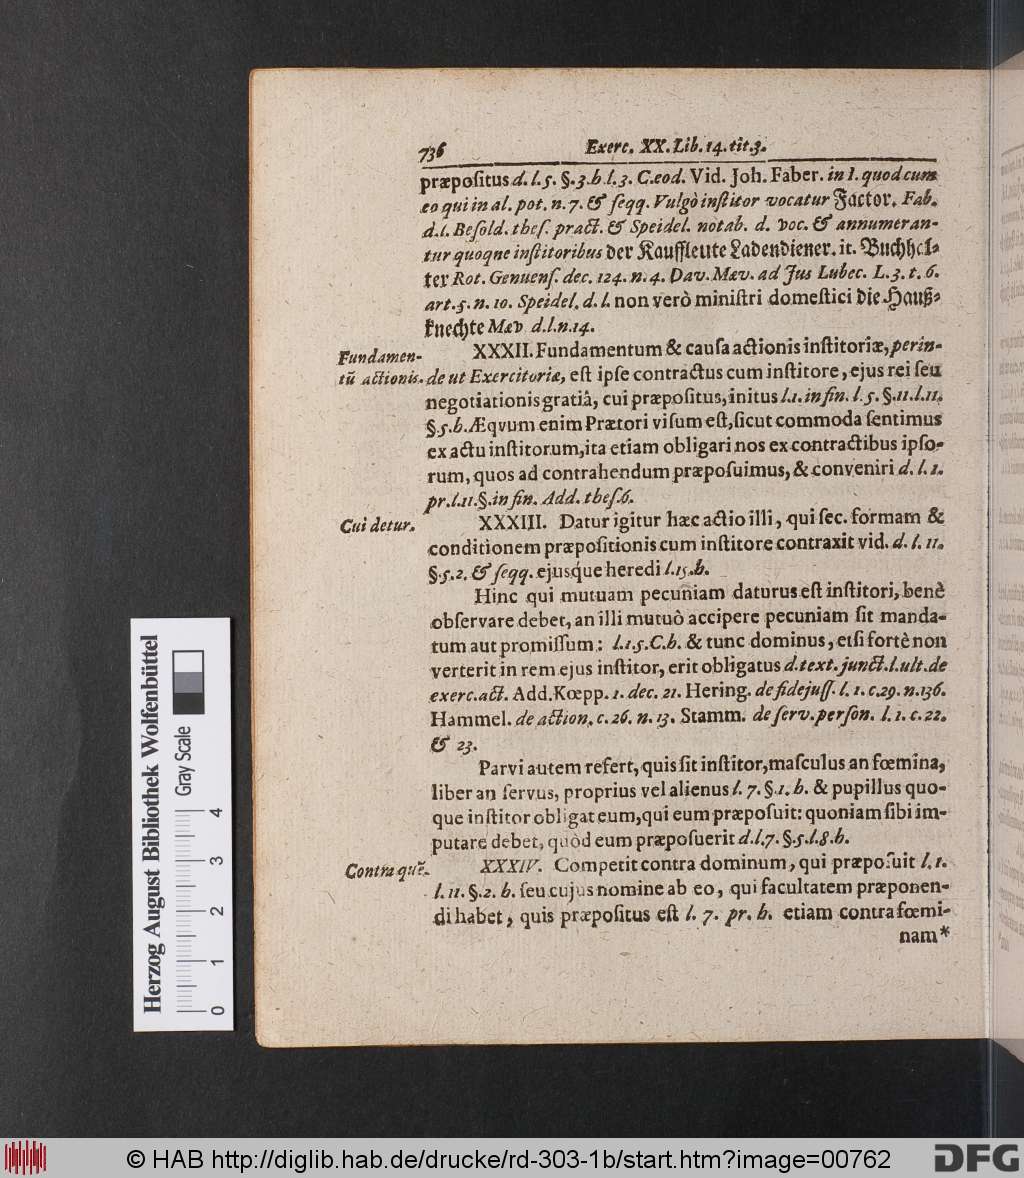 736 Exerc. XX. Lib. 14. tit. 3.
præpositus d. l. 5. §. 3. h l. 3. C. eod. Vid. Joh. Faber. in l. quod cum
eo qui in al. pot. n. 7. & seqq. Vulgò institor vocatur Factor. Fab.
d. l. Besold. thes. pract. & Speidel. notab. d. voc. & annumeran-
tur quoqne institoribus der Kauffleute Ladendiener. it. Buchhal-
ter Rot. Genuens. dec. 124. n. 4. Dav. Mæv. ad Jus Lubec. L. 3. t. 6.
art. 5. n. 10. Speidel. d. l. non verò ministri domestici die Hauß-
knechte Mæv d. l. n. 14.
Fundamen-
tū actionis.
XXXII. Fundamentum & causa actionis institoriæ, perin-
de ut Exercitoriæ, est ipse contractus cum institore, ejus rei seu
negotiationis gratiâ, cui præpositus, initus l. 1. in fin. l. 5. §. 11. l. 11.
§. 5. h. Æqvum enim Prætori visum est, sicut commoda sentimus
ex actu institorum, ita etiam obligari nos ex contractibus ipso-
rum, quos ad contrahendum præposuimus, & conveniri d. l. 1.
pr. l. 11. §. in fin. Add. thes. 6.
Cui detur.
XXXIII. Datur igitur hæc actio illi, qui sec. formam &
conditionem præpositionis cum institore contraxit vid. d. l. 11.
§. 5. 2. & seqq. ejusq́ue heredi l. 15. h.
Hinc qui mutuam pecuniam daturus est institori, benè
observare debet, an illi mutuò accipere pecuniam sit manda-
tum aut promissum: l. 1. 5. C. h. & tunc dominus, etsi fortè non
verterit in rem ejus institor, erit obligatus d. text. junct. l. ult. de
exerc. act. Add. Kœpp. 1. dec. 21. Hering. de fidejuss. l. 1. c. 29. n. 136.
Hammel. de action. c. 26. n. 13. Stamm. de serv. person. l. 1. c. 22.
& 23.
Parvi autem refert, quis sit institor, masculus an fœmina,
liber an servus, proprius vel alienus l. 7. §. 1. h. & pupillus quo-
que institor obligat eum, qui eum præposuit: quoniam sibi im-
putare debet, quòd eum præposuerit d. l. 7. §. 5. l. 8. h.
Contra què̃.
XXXIV. Competit contra dominum, qui præposuit l. 1.
l. 11. §. 2. h. seu cujus nomine ab eo, qui facultatem præponen-
di habet, quis præpositus est l. 7. pr. h. etiam contra fœmi-
nam*
Herzog August Bibliothek Wolfenbüttel
Gray Scale
0 1 2 3 4
© HAB http://diglib.hab.de/drucke/rd-303-1b/start.htm?image=00762
DFG